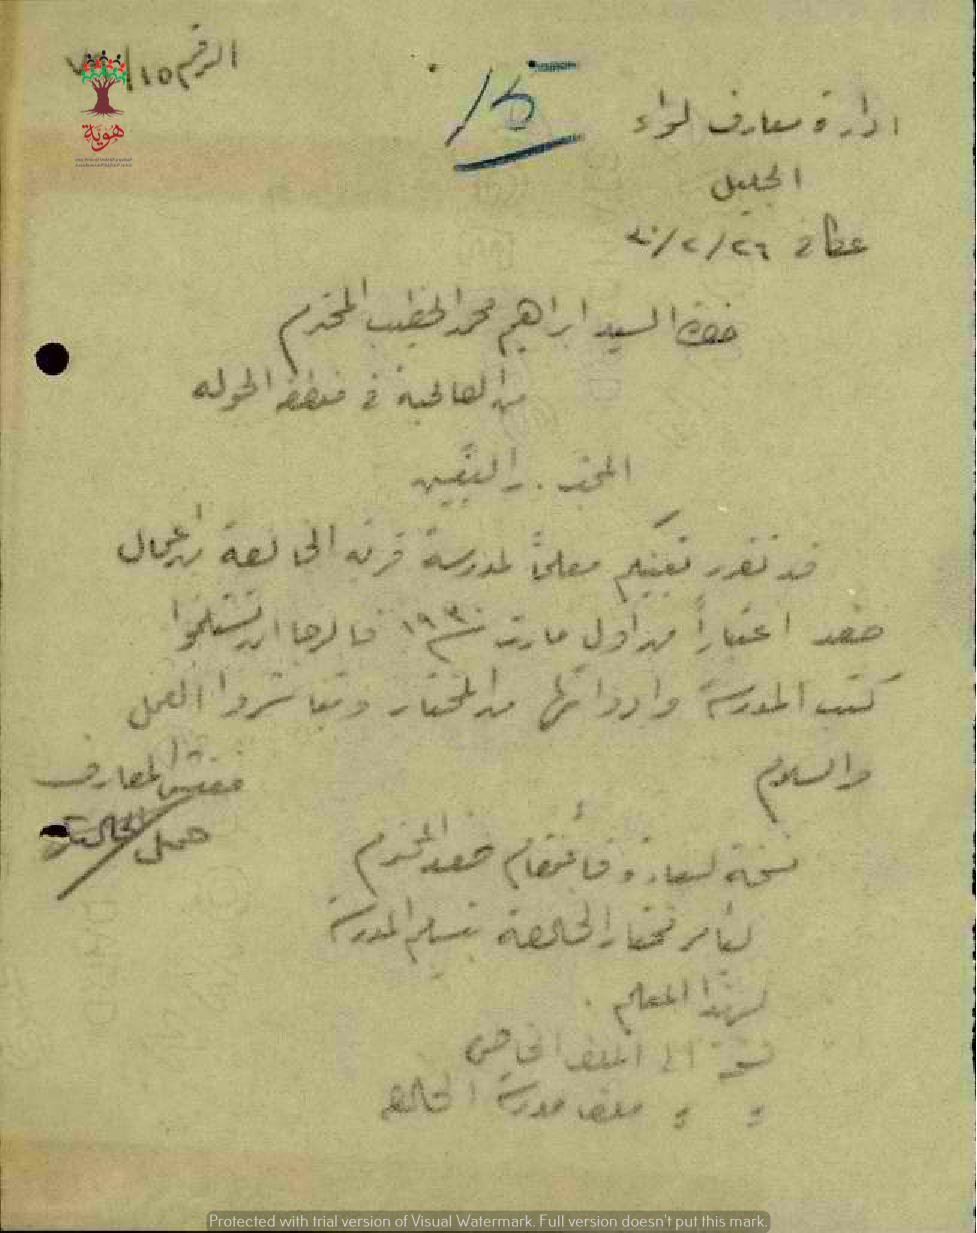 الرقم ١٥/
15/
ادارة معارف لواء
الجليل
عكا في ٢٦/٢/٣٠
هوية
حضرة السيد ابراهيم محمد الخطيب المحترم
من الصالحية في منطقة الحوله
قد تقرر تعيينكم معلماً لمدرسة قرية الخالصة من اعمال
صفد اعتباراً من اول مارت سنة ١٩٣٠ فالرجا ان تستلموا
كتب المدرسة وادواتها من المختار وتباشروا العمل
والسلام
مفتش المعارف
نسخة لسعادة قائمقام صفد المحترم
ليأمر مختار الخالصة بتسليم المدرسة
لهذا المعلم .
نسخة الى الملف الخاص
" " ملف مدرسة الخالصة
Protected with trial version of Visual Watermark. Full version doesn't put this mark.